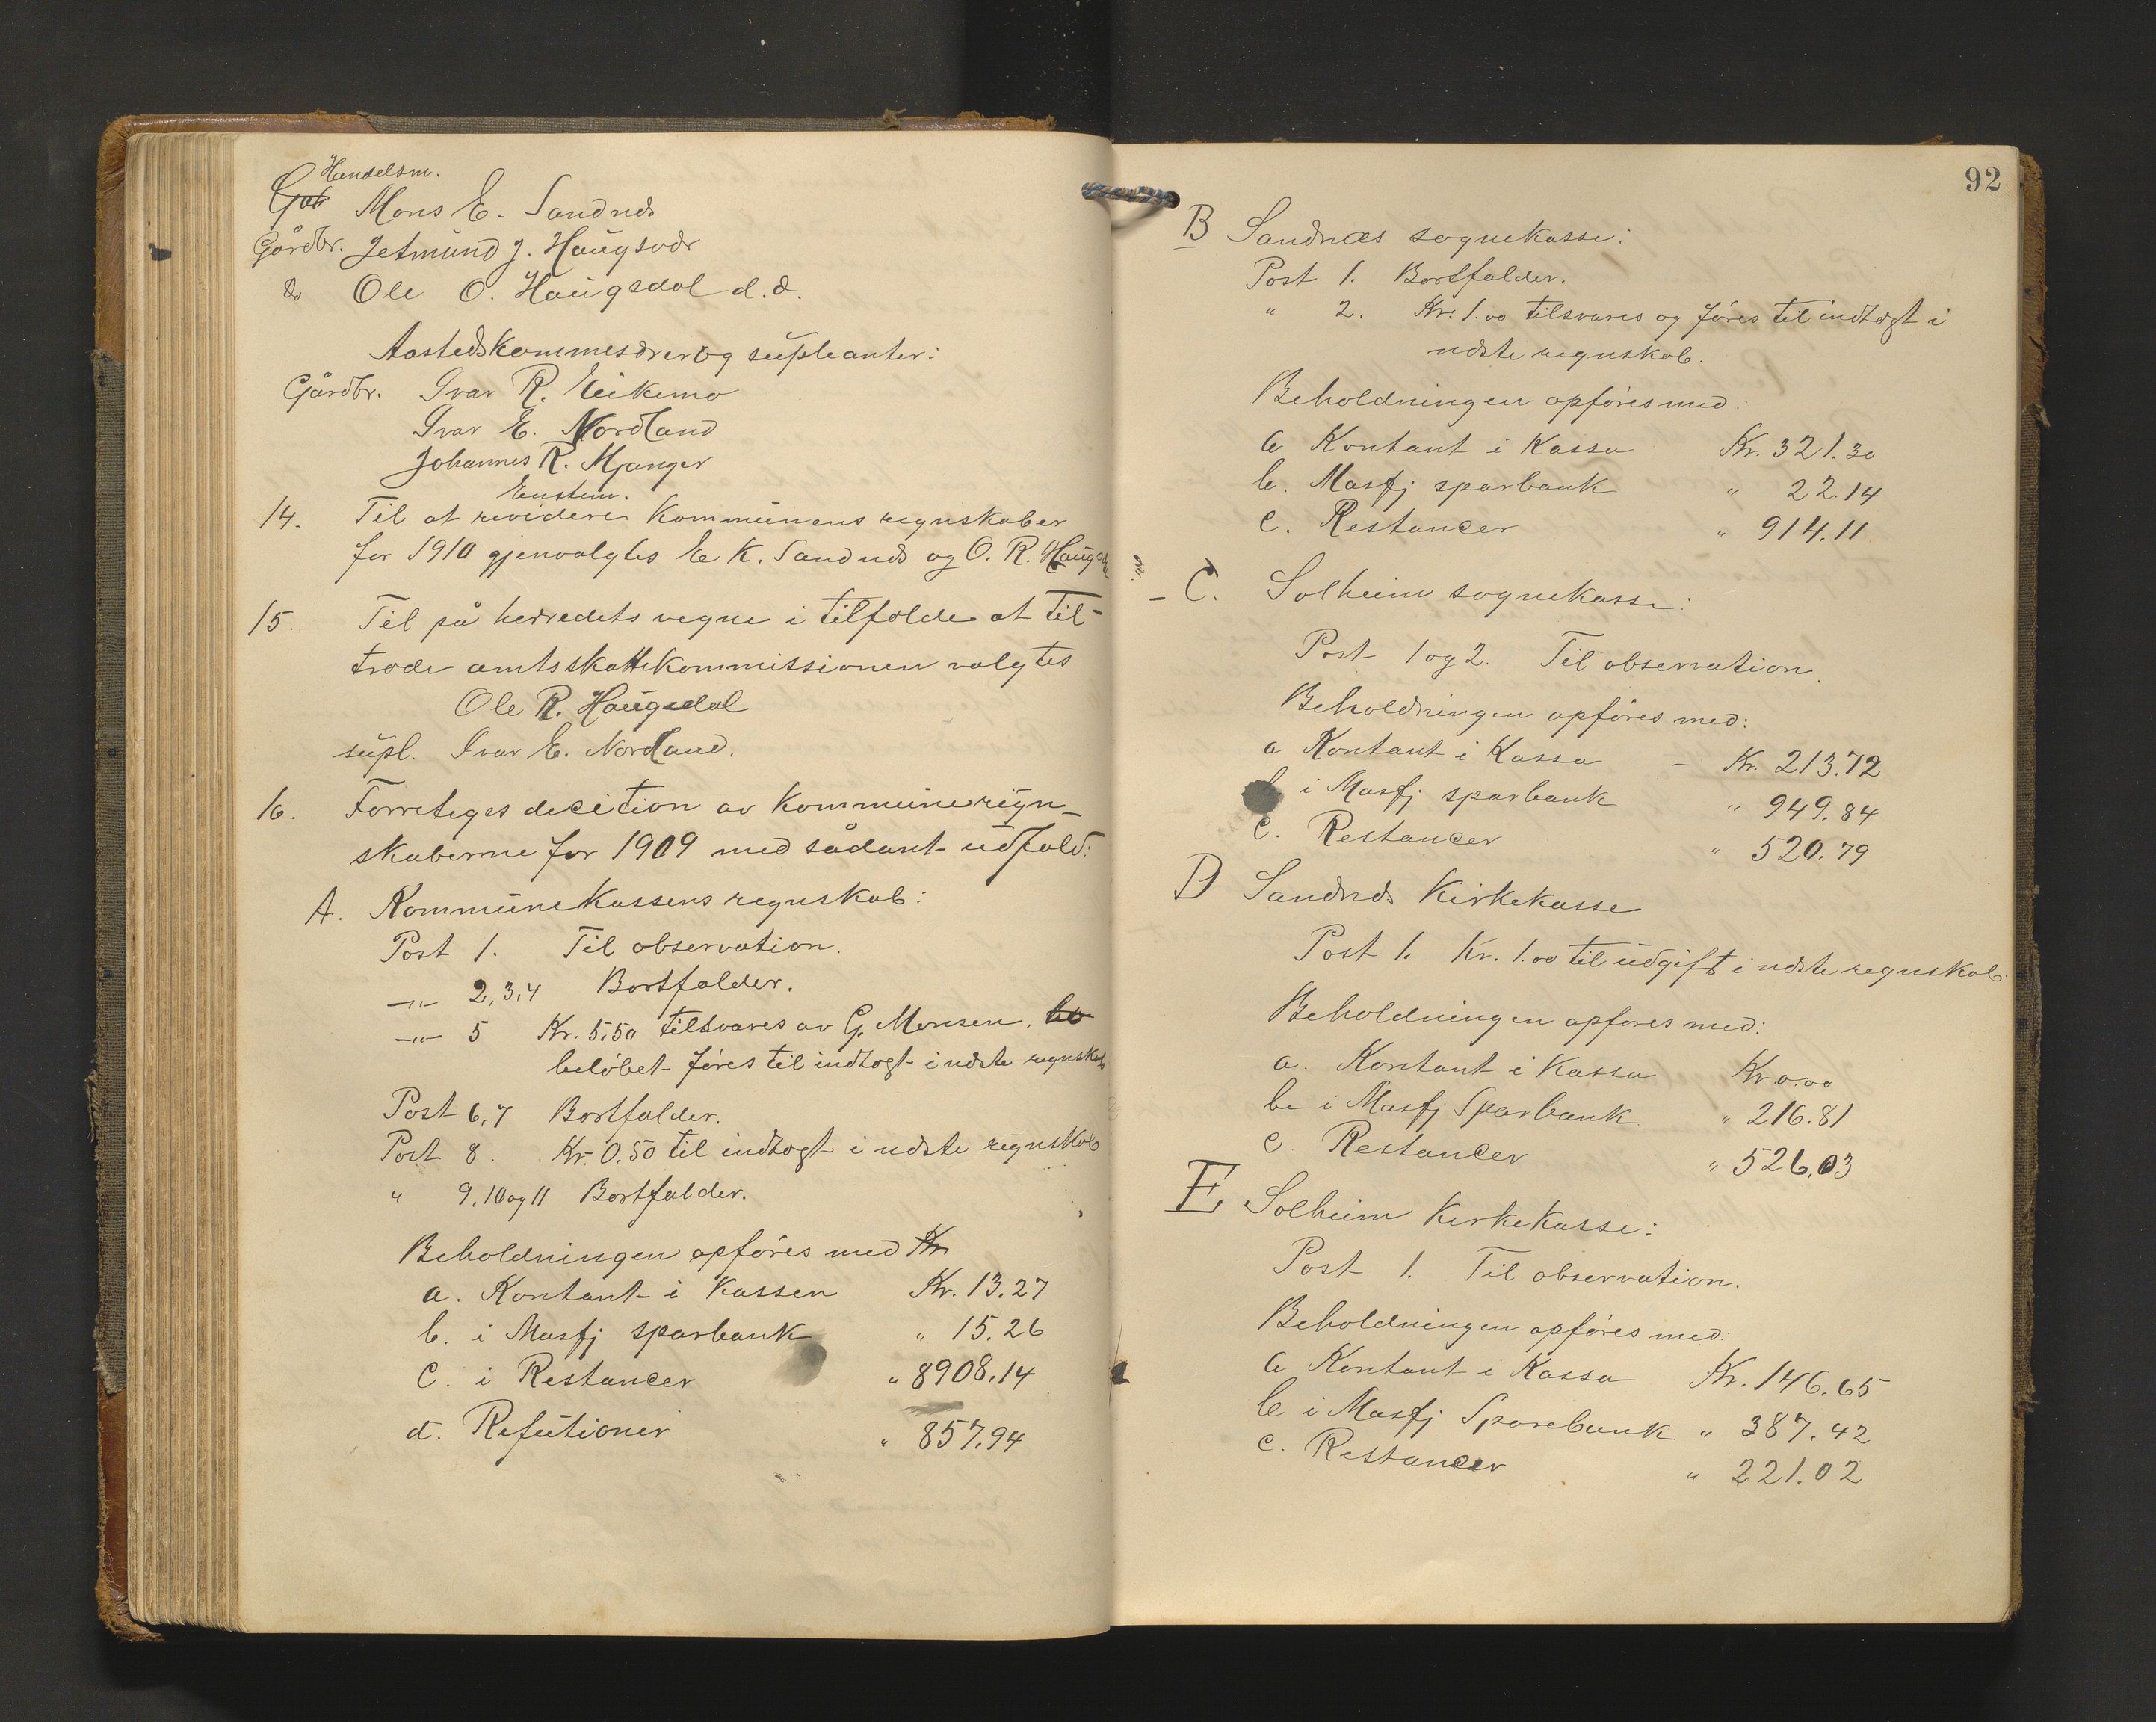 Handelsm.
Mons E. Sandnæs
Gårdbr. Jetmund J. Haugsvær
do Ole O. Haugsdal d.æ.
Aastedskommesærer og supleanter:
Gårdbr. Ivar R. Eikemo
Ivar E. Nordland
Johannes R. Mjanger
Enstem.
14. Til at revidere kommunens regnskaber
for 1910 gjenvalgtes E K. Sandnæs og O. R. Haugsdal
15. Til på herredets vegne i tilfælde at til-
træde amtsskattekommissionen valgtes
Ole R. Haugsdal
supl. Ivar E. Nordland.
16. Forretages decition av kommuneregn-
skaberne for 1909 med sådant udfald:
A. Kommunekassens regnskab:
Post 1. Til observation.
-"- 2,3,4 Bortfalder.
-"- 5 Kr. 5,50 tilsvares av G. Monsen, be
beløbet føres til indtægt i næste regnskab
Post 6,7 Bortfalder.
Post 8. Kr. 0.50 til indtægt i næste regnskab
" 9,10 og 11 Bortfalder.
Beholdningen opføres med Kr
a. Kontant i Kassen Kr. 13.27
b. i Masfj sparbank " 15.26
C. i Restancer " 8908.14
d. Refutioner " 857,94
92
B Sandnæs sognekasse:
Post 1. Bortfalder.
" 2. Kr. 1.00 tilsvares og føres til indtægt i
næste regnskab.
Beholdningen opføres med:
a Kontant i Kassa Kr. 321.30
b. Masfj sparbank " 22.14
c. Restancer " 914.11
- C. Solheim sognekasse:
Post 1 og 2. Til observation.
Beholdningen opføres med:
a Kontant i Kassa - Kr. 213.72
b i Masfj sparbank " 949.84
c. Restancer " 520.79
D Sandnæs Kirkekasse
Post 1. Kr. 1.00 til udgift i næste regnskab.
Beholdningen opføres med:
a. Kontant i Kassa Kr 0.00
b i Masfj Sparbank " 216.81
c Restancer " 526,03
E Solheim Kirkekasse:
Post 1. Til observation.
Beholdningen opføres med:
a Kontant i Kassa Kr. 146.65
b i Masfj Sparebank " 387.42
c. Restancer " 221.02